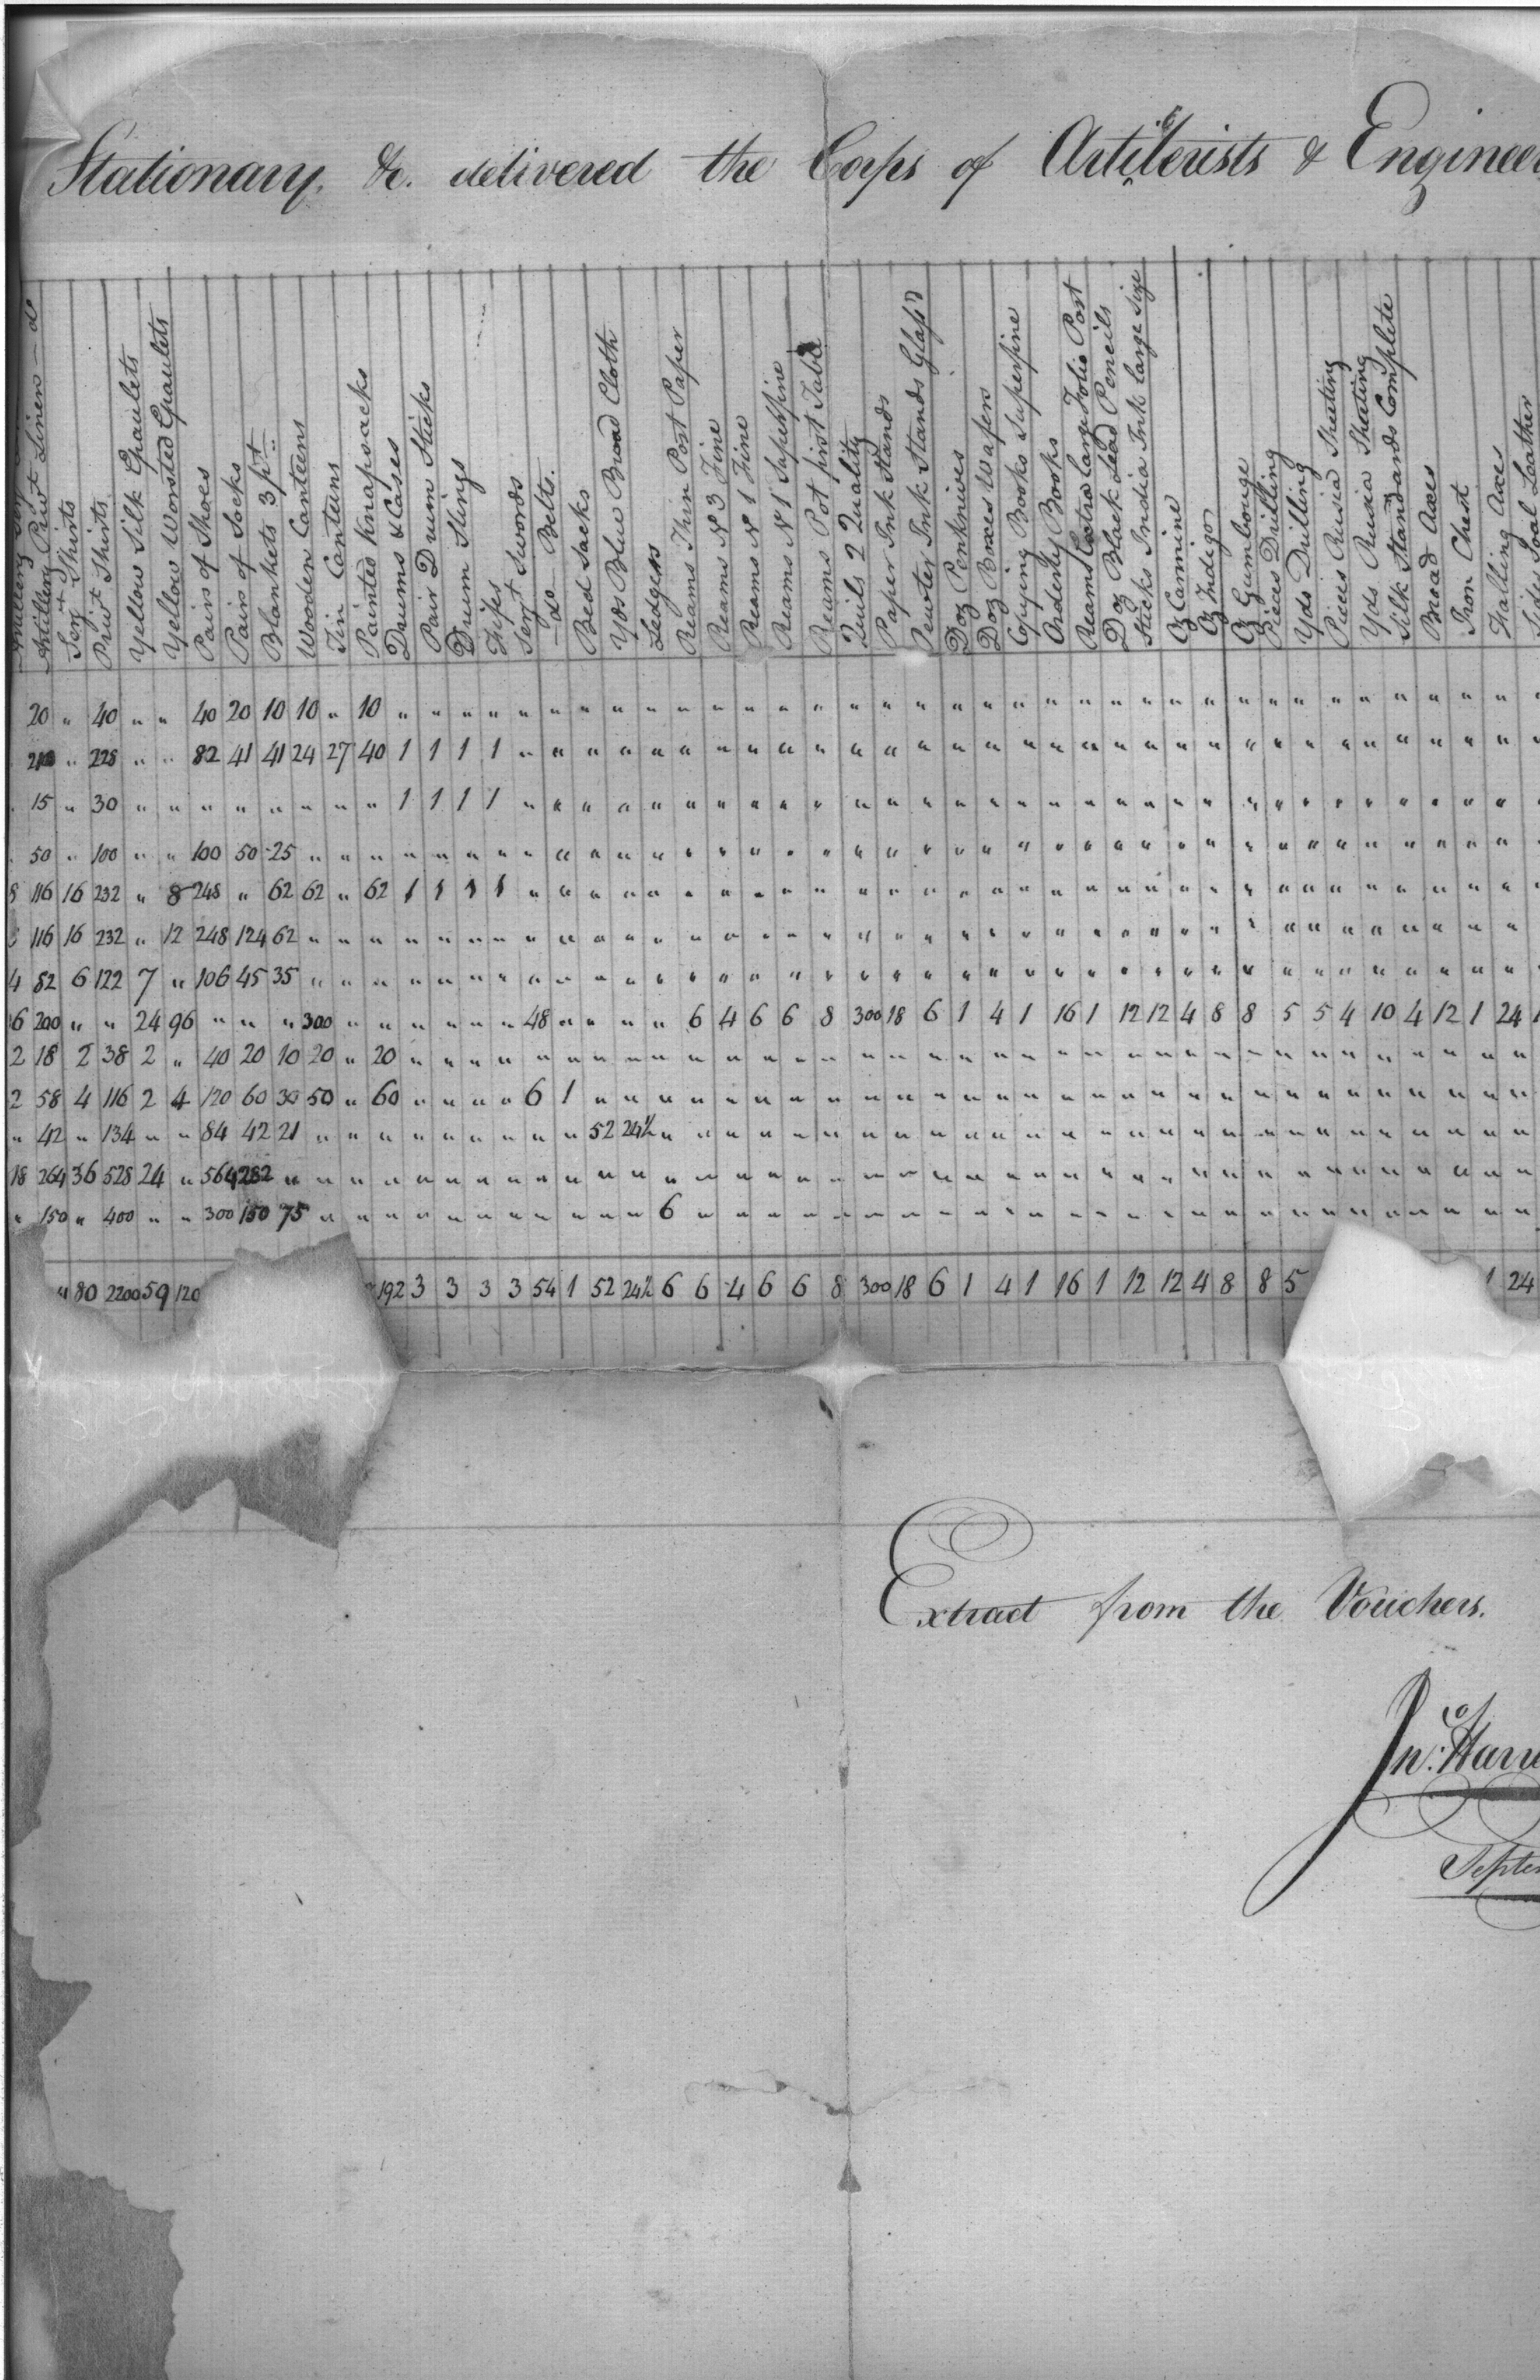 Stationary, &c. delivered the Corps of Artillerists & Engineer
Artillery Privt Linen do
Sergts Shirts
Privt Shirts
Yellow Silk Epaulets
Yellow Worsted Epaulets
Pairs of Shoes
Pairs of Socks
Blankets 3 pt
Wooden Canteens
Tin Canteens
Painted Knapsacks
Drums & Cases
Pair Drum Sticks
Drum Slings
Fifes
Sergt Swords
do Belts.
Bed Sacks
Yds Blue Broad Cloth
Ledgers
Reams Thin Post Paper
Reams No 3 Fine
Reams No 1 Fine
Reams No 1 Superfine
Reams Pot first Table
Quils 2 Quality
Paper Ink Stands
Pewter Ink Stands Glass'd
Doz Penknives
Doz Boxes Wafers
Copying Books Superfine
Orderly Books
Reams Extra Large Folio Post
Doz Black Lead Pencils
Sticks India Ink large size
Oz Carmine
Oz Indigo
Oz Gumbouge
Pieces Drilling
Yds Drilling
Pieces Rusia Sheeting
Yds Rusia Sheeting
Silk Standards Complete
Broad Axes
Iron Chest
Falling Axes
Sides Soal Leather
20 " 40 " " 40 20 10 10 " 10 " " " " " " " " " " " " " " " " " " " " " " " " " " " " " " " " " " " "
" 228 " " 82 41 41 24 27 40 1 1 1 1 " " " " " " " " " " " " " " " " " " " " " " " " " " " " " " " "
15 " 30 " " " " " " " " 1 1 1 1 " " " " " " " " " " " " " " " " " " " " " " " " " " " " " " " "
50 " 100 " " 100 50 25 " " " " " " " " " " " " " " " " " " " " " " " " " " " " " " " " " " " " " " "
8 116 16 232 " 8 248 " 62 62 " 62 1 1 1 1 " " " " " " " " " " " " " " " " " " " " " " " " " " " " " " " "
116 16 232 " 12 248 124 62 " " " " " " " " " " " " " " " " " " " " " " " " " " " " " " " " " " " " " " "
4 82 6 122 7 " 106 45 35 " " " " " " " " " " " " " " " " " " " " " " " " " " " " " " " " " " " " " " "
6 200 " " 24 96 " " " 300 " " " " " " 48 " " " " 6 4 6 6 8 300 18 6 1 4 1 16 1 12 12 4 8 8 5 5 4 10 4 12 1 24 1
2 18 2 38 2 " 40 20 10 20 " 20 " " " " " " " " " " " " " " " " " " " " " " " " " " " " " " " " " " " "
2 58 4 116 2 4 120 60 30 50 " 60 " " " " 6 1 " " " " " " " " " " " " " " " " " " " " " " " " " " " " " "
" 42 " 134 " " 84 42 21 " " " " " " " " " 52 24½ " " " " " " " " " " " " " " " " " " " " " " " " " " " "
18 264 36 528 24 " 564 282 " " " " " " " " " " " " " " " " " " " " " " " " " " " " " " " " " " " " " " " "
" 150 " 400 " " 300 150 75 " " " " " " " " " " " 6 " " " " " " " " " " " " " " " " " " " " " " " " " " "
80 2200 59 120 192 3 3 3 3 54 1 52 24½ 6 6 4 6 6 8 300 18 6 1 4 1 16 1 12 12 4 8 8 5 1 24
Extract from the Vouchers.
Jno. Harr
Septem